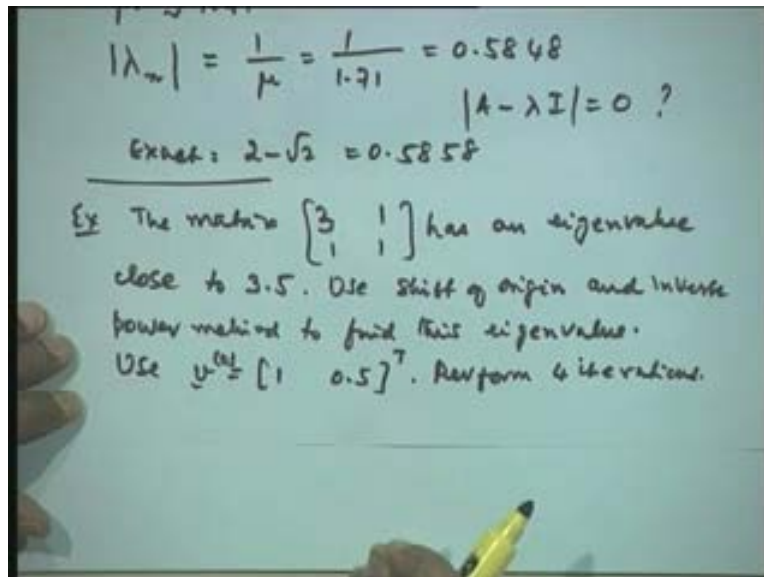 |λₙ| = 1/μ = 1/1.71 = 0.5848
|A - λI| = 0 ?
Exact: 2-√2 = 0.5858
Ex The matrix [3 1; 1 1] has an eigenvalue
close to 3.5. Use shift of origin and inverse
power method to find this eigenvalue.
Use v⁽⁰⁾ = [1 0.5]ᵀ. Perform 4 iterations.